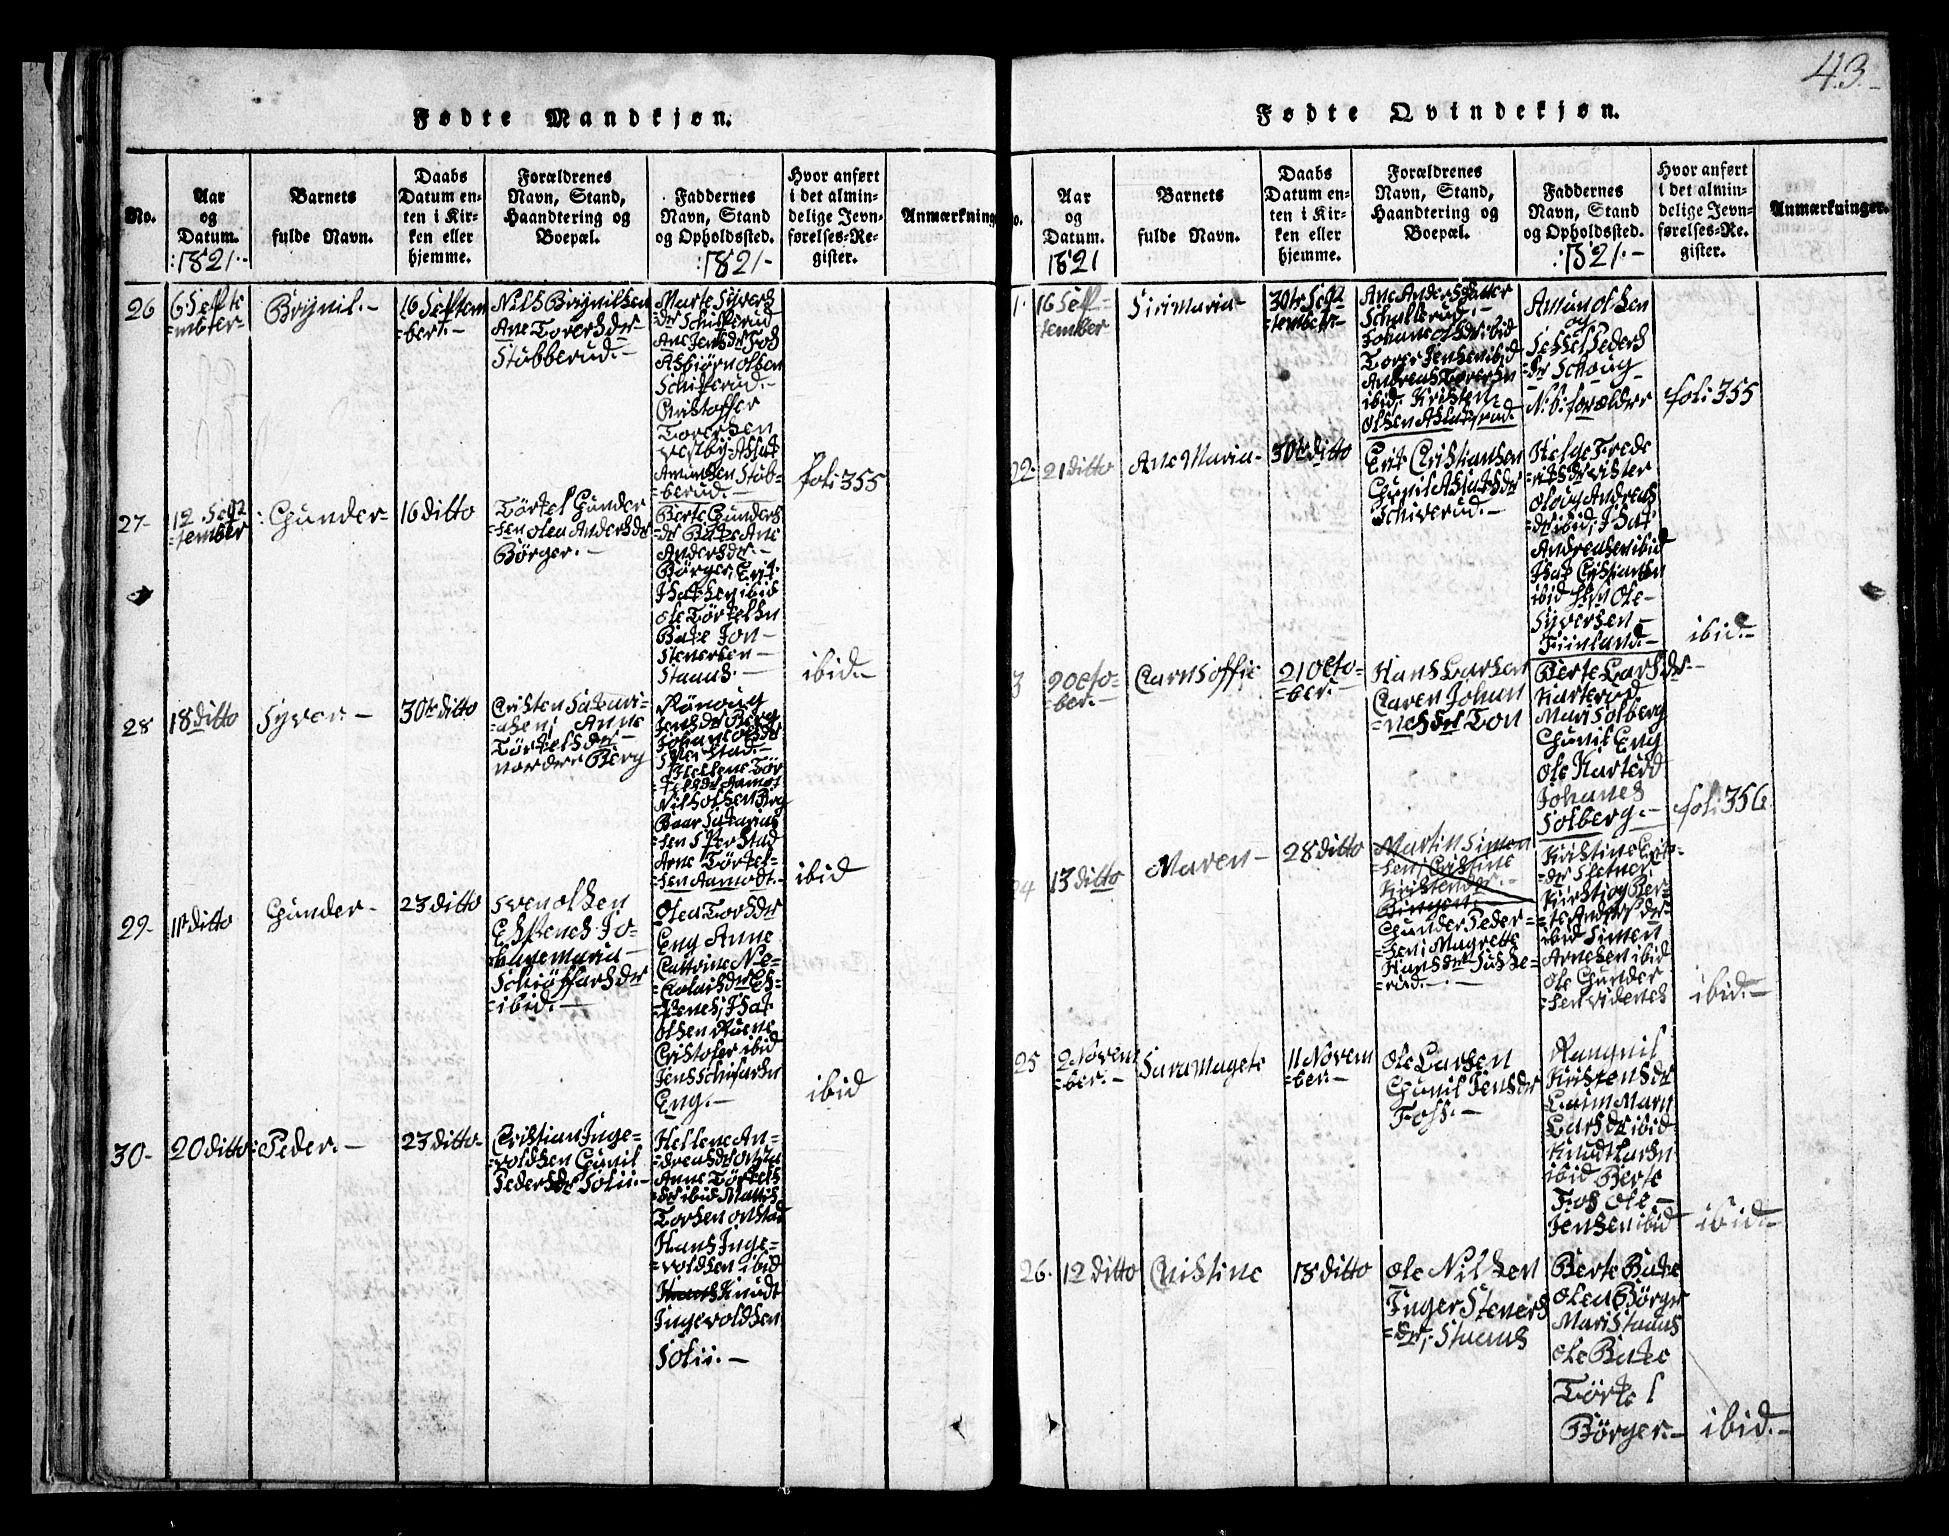 43.-
Fødte Mandkjøn.
No.
Aar
og
Datum.
:1821.-
Barnets
fulde Navn.
Daabs
Datum en-
ten i Kir-
ken eller
hjemme.
Forældrenes
Navn, Stand,
Haandtering og
Boepæl.
Faddernes
Navn, Stand
og Opholdssted.
:1821-
Hvor anført
i det almin-
delige Jevn-
førelses-Re-
gister.
Anmærkning
26
6 Septe
=mbter-
Brynil.-
16 Septem
=bert.-
Nils Brynilsen
Ane Torersdr-
Stubberud.-
Marte Syvers
=dr Schipperud
Ane Jensdr Foss
Asbiørn Olsen
Schipperud.-
Cristoffer
Torersen
Vestby Aslak
Amundsen Stub-
=berud.-
foli 355
27-
12. Sept
=tember
Gunder-
16 ditto
Törkel Gunder
=sen Olea Andersdr
Börger.-
Berte Gunders
=dr Bake Ane
Andersdr.-
Börger, Erik
Isaksen ibid
Ole Törkelsn
Bake Jon-
Stenersen-
Staaus.-
ibid.-
28
18 ditto
Syver.-
30te ditto
Cristen Sakari-
=asen, Anne
Törkelsdr-
nordre Berg
Rönoug
Jensdr Berg
Johane Olsdr
Sperstad.-
Hellene Tör
=kelsdr Aamot
Nils Olsen Brg
Baar Sakarias
=sen Sperstad
Arne Törkel-
=sen Aamodt.-
ibid
29-
11te ditto
Gunder-
23 ditto
Sven Olsen
Espenes Jo-
=hanemaria-
Schiöffarsdr
=ibid.-
Olea Torsdr
Eng Anne
Cattrine Ne-
=Colaisdr Es-
=penes, Isak
Olsen Ruene
Cristofer ibid
Jens Schifarsn
Eng.-
ibid
30-
20 ditto
Peder.-
23 ditto-
Cristian Inge-
=voldsen Gunil
Pedersdr Solii.-
Hellene An-
=dreasdr Onsta
Anne Törkels
=dr ibid Mattis
Torsen Onstad
Hans Inge-
=voldsen ibid
Knudt
Ingevoldsen
Solii.-
Fødte Qvindekjøn.
o.
Aar
og
Datum.
1821
Barnets
fulde Navn.
Daabs
Datum en-
ten i Kir-
ken eller
hjemme.
Forældrenes
Navn, Stand,
Haandtering og
Boepæl.
Faddernes
Navn, Stand
og Opholdssted.
:1821.-
Hvor anført
i det almin-
delige Jevn-
førelses-Re-
gister.
Anmærkninger.
1.
16 Sep-
tember
Sirimaria-
30te Sept
=tember-
Ane Andersdatter
Schullerud.-
Johane Olsdr ibid
Torer Jensen ibid
Andreas Torersen
ibid. Kristen
Olsen Aslaksrud.
Amun Olsen
og
Sessel Peders
=dr Schoug-
N.b: forældre
foli 355
22.
21 ditto
Ane Maria-
30te ditto
Erik Cristiansen
Gunil Aslaksdr
Schiverud.-
Helge Frede
=riksdr vister
Oloug Andreas
=dr ibid, Isak
Andreasen ibid
Isak Cristiansen
ibid Ole-
Syversen-
Finland.-
ibid.-
3
2 Octo-
=ber.-
Carnsoffie
21 Octo-
=ber.-
Hans Larsen
Caren Johan
=nesdr Ton
Berte Larsdr.-
Karterud.
Mari Solberg
Gunil Eng
Ole Karterd
Johanes
Solberg.-
foli 356
24
13 ditto
Maren-
28 ditto
Martin Simen
=sen, Cristine
Kristendr.-
Bingen.-
Gunder Peder-
=sen, Magrette
Hansdr Susse-
=rud.-
=dr Sletner
ibid Simen
Arnesen ibid
Ole Gunder
=sen Videnes
ibid.-
25
2 Novem
=ber.-
Sara Magete
11 Novem
=ber.-
Ole Larsen
Gunil Jensdr
Foss.-
Rangnil
Kristensdr
Larsdr ibid
Knudt Larsn
ibid Berte
Fos Ole-
Jensen ibid
ibid.-
26.
12 ditto
Cristine
18 ditto
Ole Nilsen
Inger Steners
=dr, Staaus
Berte Bake
Olea Börger
Mari Staaus
Ole Bake
Törkel
Börger.-
ibid.-